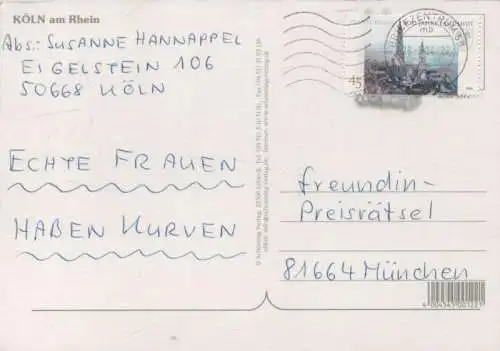 KÖLN am Rhein
Abs.: SUSANNE HANNAPPEL
EIGELSTEIN 106
50668 KÖLN
ECHTE FRAUEN
HABEN KURVEN
BRIEFZENTRUM
mb
45
Freundin-
Preisrätsel
81664 München